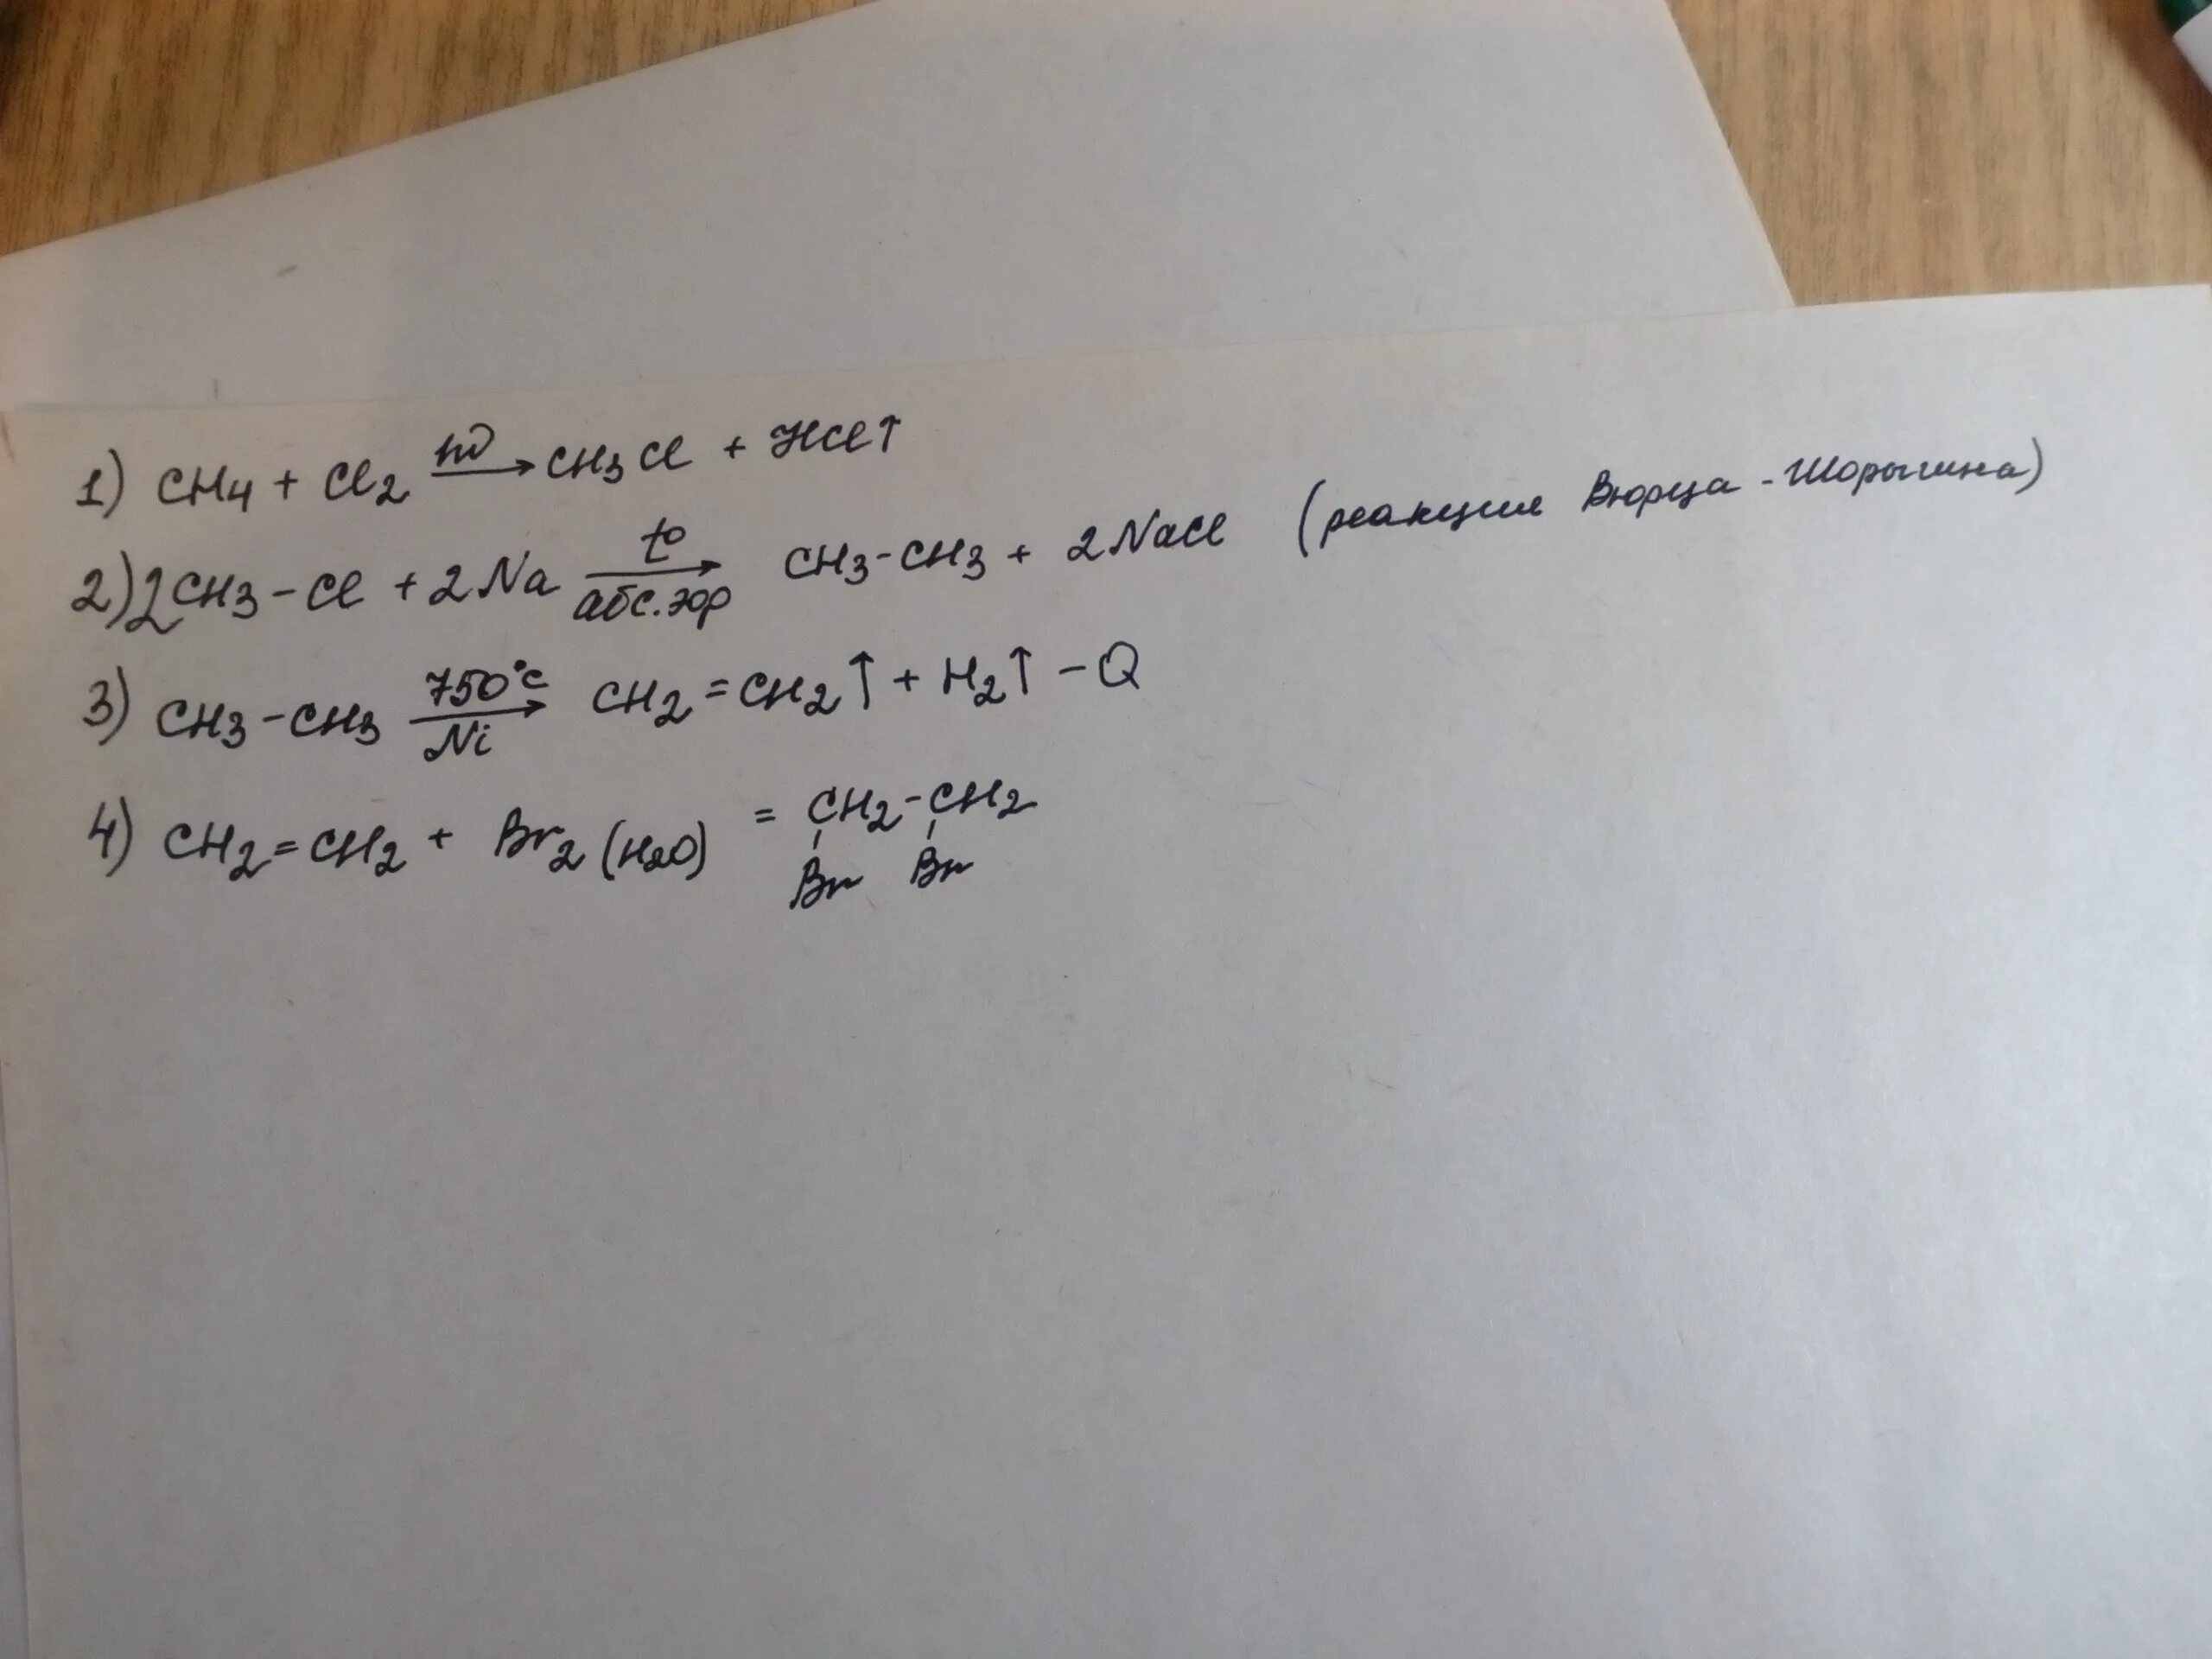 1) CH4 + Cl2 hν → CH3Cl + HCl↑
2) 2CH3-Cl + 2Na t° → абс. эфр CH3-CH3 + 2NaCl (реакция Вюрца-Шорыгина)
3) CH3-CH3 750°C → Ni CH2=CH2↑ + H2↑ -Q
4) CH2=CH2 + Br2 (H2O) = CH2-CH2
Br Br